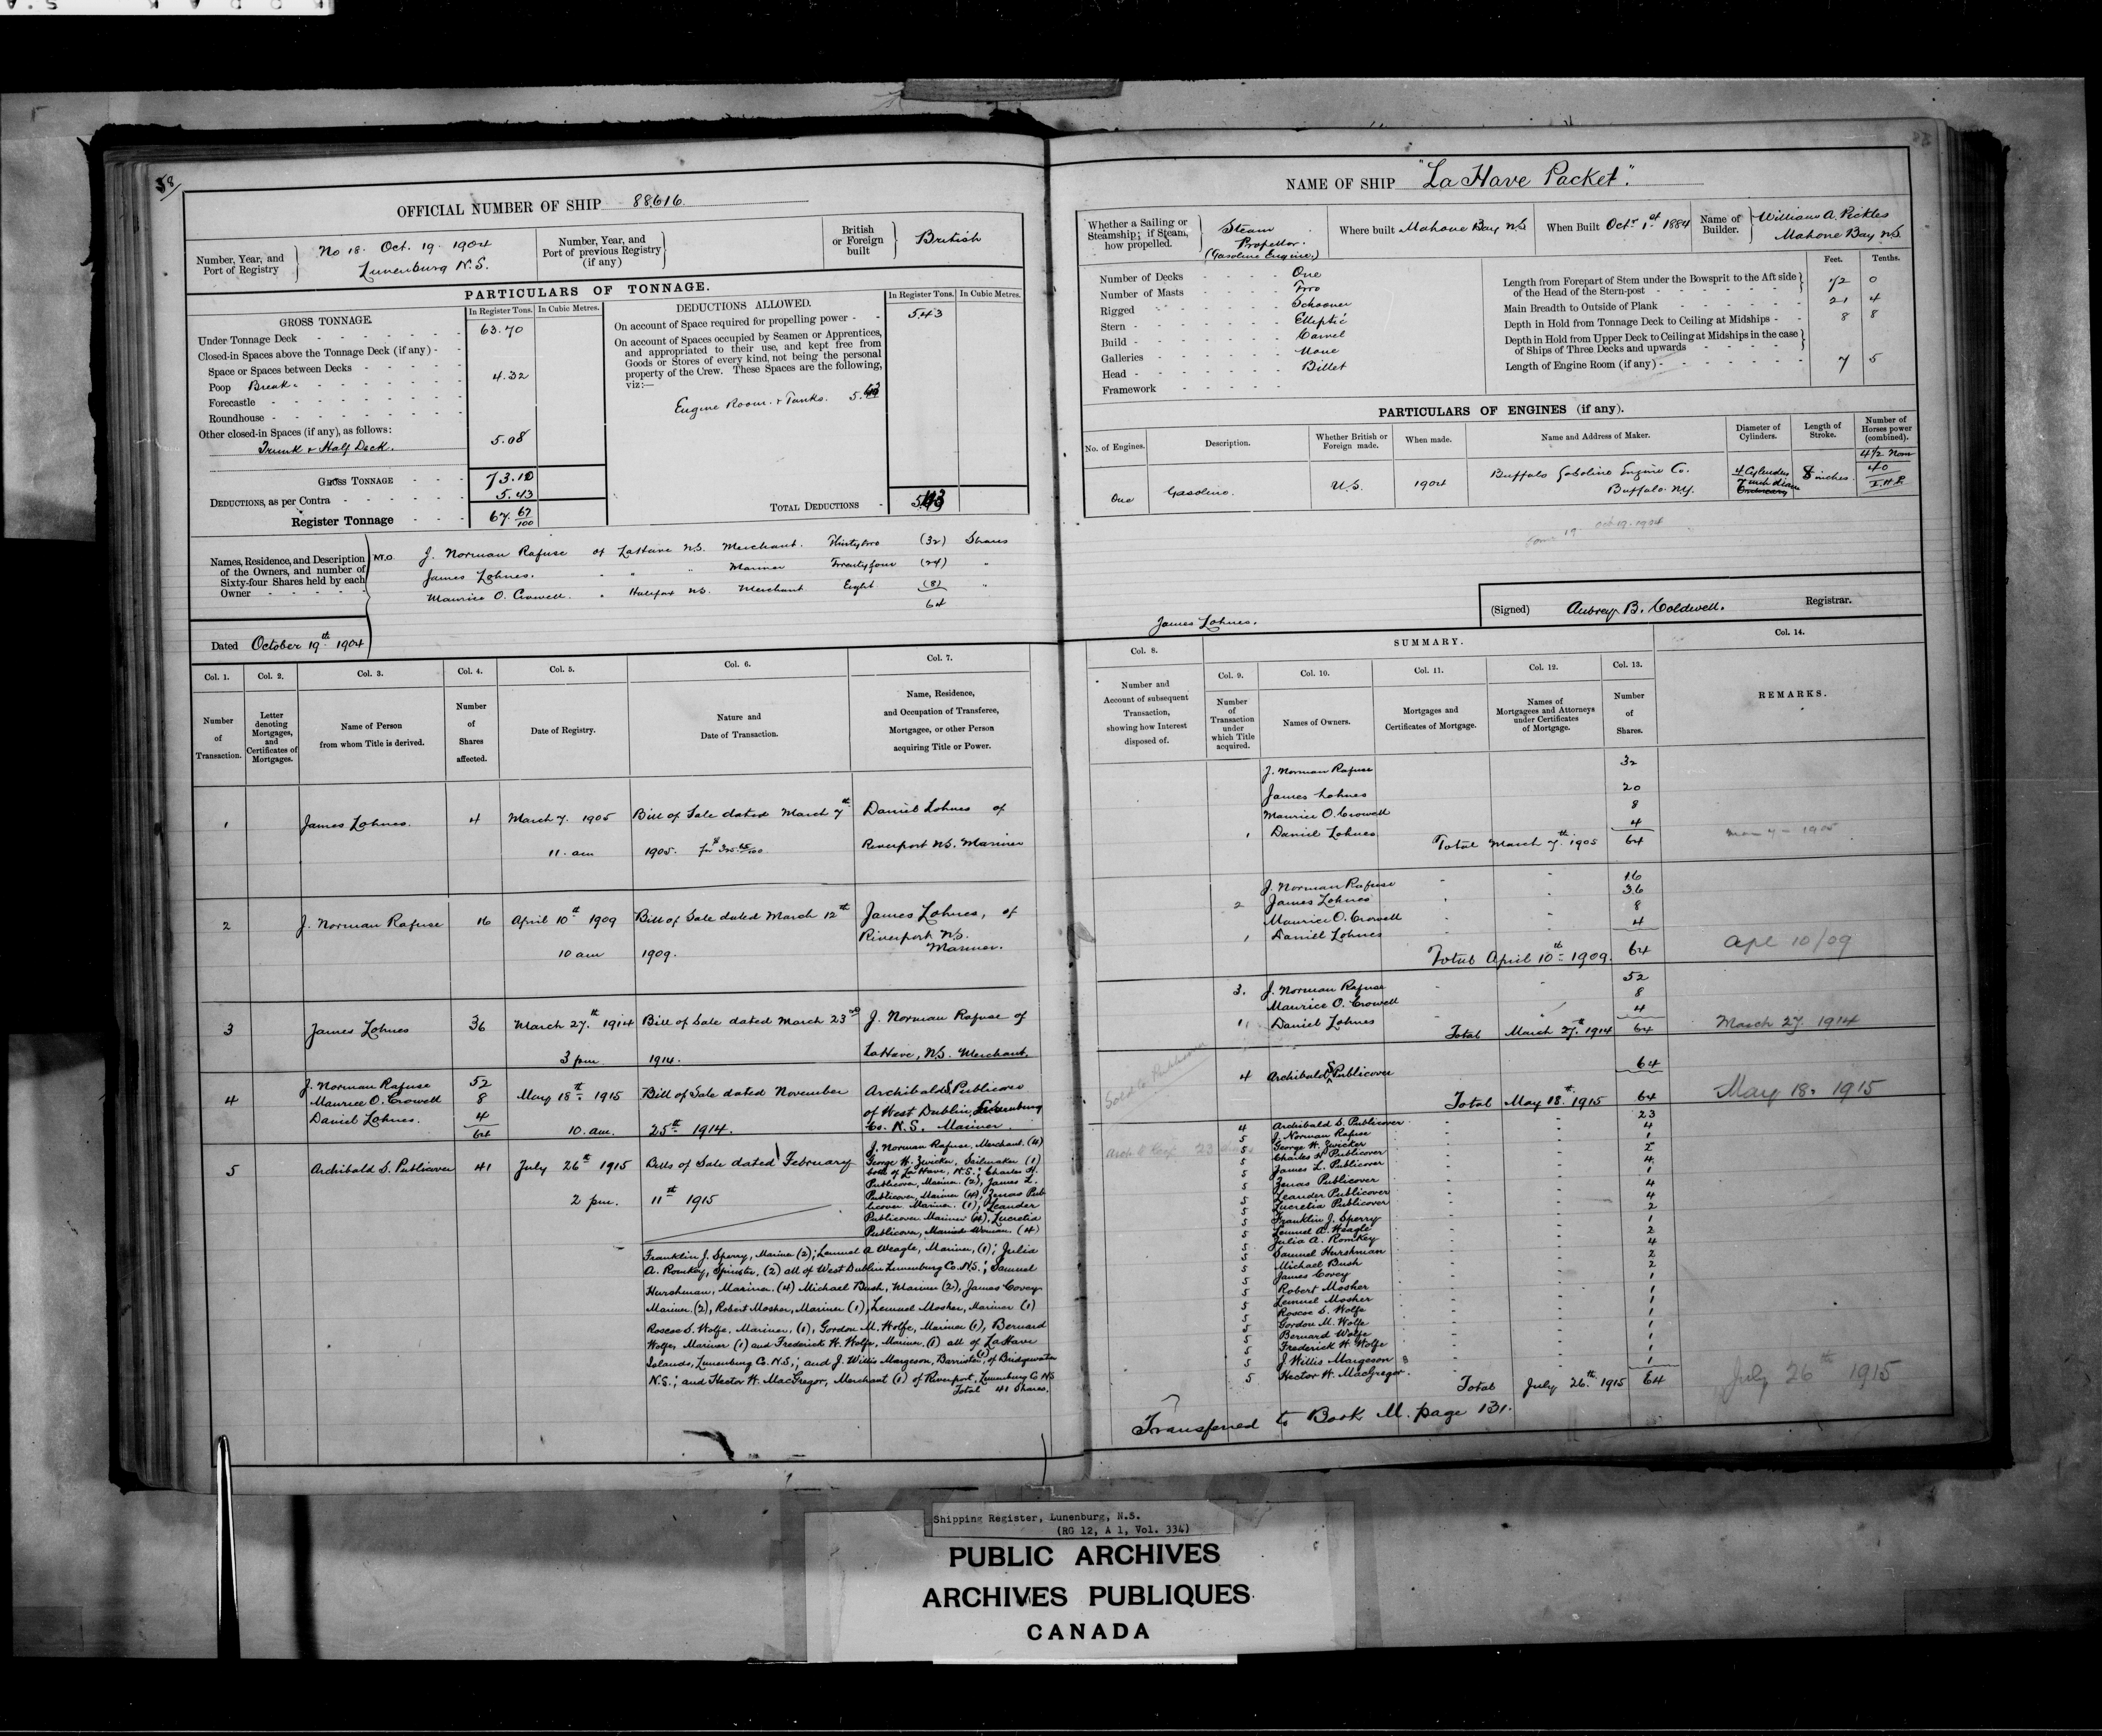 58/
OFFICIAL NUMBER OF SHIP 88616
Number, Year, and Port of Registry
No 18. Oct. 19. 1904
Lunenburg N.S.
Number, Year, and Port of previous Registry (if any)
British or Foreign built
British
PARTICULARS OF TONNAGE.
GROSS TONNAGE.
In Register Tons. In Cubic Metres.
Under Tonnage Deck 63.70
Closed-in Spaces above the Tonnage Deck (if any)
Space or Spaces between Decks
Poop Break 4.32
Forecastle
Roundhouse
Other closed-in Spaces (if any), as follows:
Trunk & Half Deck. 5.08
GROSS TONNAGE 73.10
DEDUCTIONS, as per Contra 5.43
Register Tonnage 67. 67/100
DEDUCTIONS ALLOWED.
In Register Tons. In Cubic Metres.
On account of Space required for propelling power 5.43
On account of Spaces occupied by Seamen or Apprentices,
and appropriated to their use, and kept free from
Goods or Stores of every kind, not being the personal
property of the Crew. These Spaces are the following,
viz:—
Engine Room & Tanks. 5.43
TOTAL DEDUCTIONS 5.43
Names, Residence, and Description
of the Owners, and number of
Sixty-four Shares held by each
Owner
J. Norman Rafuse of LaHave N.S. Merchant. Thirtytwo (32) Shares
James Lohnes. " " Mariner Twentyfour (24) "
Maurice O. Crowell. " Halifax N.S. Merchant Eight (8) "
64
Dated October 19th 1904
Col. 1. Col. 2. Col. 3. Col. 4. Col. 5. Col. 6. Col. 7.
Number of Transaction.
Letter denoting Mortgages, and Certificates of Mortgages.
Name of Person from whom Title is derived.
Number of Shares affected.
Date of Registry.
Nature and Date of Transaction.
Name, Residence, and Occupation of Transferee, Mortgagee, or other Person acquiring Title or Power.
1 James Lohnes. 4 March 7. 1905 Bill of Sale dated March 7th Daniel Lohnes of
11. am 1905. Riverport N.S. Mariner
2 J. Norman Rafuse 16 April 10th 1909 Bill of Sale dated March 12th James Lohnes, of
Riverport N.S.
10 am 1909. Mariner.
3 James Lohnes 36 March 27th 1914 Bill of Sale dated March 23rd J. Norman Rafuse of
3 pm 1914. LaHave, N.S. Merchant.
J. Norman Rafuse 52
4 Maurice O. Crowell 8 May 18th 1915 Bill of Sale dated November Archibald S Publicover
Daniel Lohnes. 4 of West Dublin, Lunenburg
64 10. am. 25th 1914. Co. N.S. Mariner.
5 Archibald S. Publicover 41 July 26th 1915 Bills of Sale dated February
2 pm. 11th 1915
J. Norman Rafuse, Merchant. (4)
George H. Zwicker, Sailmaker (1)
both of La Have, N.S.; Charles H.
Publicover, Mariner. (2), James L.
Publicover, Mariner (4), Zenas Pub
licover Mariner. (1), Leander
Publicover Mariner (4), Lucretia
Publicover, Married Woman (4)
Franklin J. Sperry, Mariner (2); Lemuel A Weagle, Mariner, (1); Julia
A. Romkey, Spinster, (2) all of West Dublin Lunenburg Co. N.S.; Samuel
Hurshman, Mariner. (4) Michael Bush, Mariner (2), James Covey
Mariner. (2), Robert Mosher, Mariner (1), Lemuel Mosher, Mariner (1)
Roscoe S. Wolfe, Mariner, (1), Gordon M. Wolfe, Mariner (1), Bernard
Wolfe, Mariner (1) and Frederick H. Wolfe, Mariner (1) all of LaHave
Islands, Lunenburg Co. N.S.; and J. Willis Margeson, Barrister (1), of Bridgewater
N.S.; and Hector W. MacGregor, Merchant (1) of Riverport, Lunenburg Co NS
Total 41 Shares.
NAME OF SHIP "La Have Packet".
Whether a Sailing or Steamship; if Steam, how propelled.
Steam
Propellor.
(Gasoline Engine.)
Where built Mahone Bay N.S.
When Built Octr 1st 1884
Name of Builder.
William A. Pickles
Mahone Bay N.S.
Number of Decks One
Number of Masts Two
Rigged Schooner
Stern Elliptic
Build Carvel
Galleries None
Head Billet
Framework
Feet. Tenths.
Length from Forepart of Stem under the Bowsprit to the Aft side
of the Head of the Stern-post 72 0
Main Breadth to Outside of Plank 21 4
Depth in Hold from Tonnage Deck to Ceiling at Midships 8 8
Depth in Hold from Upper Deck to Ceiling at Midships in the case
of Ships of Three Decks and upwards
Length of Engine Room (if any) 7 5
PARTICULARS OF ENGINES (if any).
No. of Engines. Description. Whether British or Foreign made. When made. Name and Address of Maker. Diameter of Cylinders. Length of Stroke. Number of Horses power (combined).
One Gasoline. U.S. 1904 Buffalo Gasoline Engine Co.
Buffalo. N.Y.
4 Cylinders
7 inch diam
8 inches.
4 1/2 Nom
40
I.H.P.
Oct 19. 1904
(Signed) Aubrey B. Coldwell. Registrar.
James Lohnes.
SUMMARY.
Col. 8. Col. 9. Col. 10. Col. 11. Col. 12. Col. 13. Col. 14.
Number and Account of subsequent Transaction, showing how Interest disposed of.
Number of Transaction under which Title acquired.
Names of Owners.
Mortgages and Certificates of Mortgage.
Names of Mortgagees and Attorneys under Certificates of Mortgage.
Number of Shares.
REMARKS.
J. Norman Rafuse 32
James Lohnes 20
Maurice O. Crowell 8
1 Daniel Lohnes 4
Total March 7th 1905 64 Mar 7 - 1905
J. Norman Rafuse 16
2 James Lohnes 36
Maurice O. Crowell 8
1 Daniel Lohnes 4
Total April 10th 1909. 64 Apl 10/09
3. J. Norman Rafuse 52
Maurice O. Crowell 8
1 Daniel Lohnes 4
Total March 27th 1914 64 March 27. 1914
4 Archibald S Publicover 64
Total May 18th 1915 64 May 18. 1915
4 Archibald S. Publicover 23
5 J. Norman Rafuse 4
5 George H. Zwicker 1
5 Charles H Publicover 2
5 James L. Publicover 4
5 Zenas Publicover 1
5 Leander Publicover 4
5 Lucretia Publicover 4
5 Franklin J. Sperry 2
5 Lemuel A. Weagle 1
5 Julia A. Romkey 2
5 Samuel Hurshman 4
5 Michael Bush 2
5 James Covey 2
5 Robert Mosher 1
5 Lemuel Mosher 1
5 Roscoe S. Wolfe 1
5 Gordon M. Wolfe 1
5 Bernard Wolfe 1
5 Frederick H. Wolfe 1
5 J Willis Margeson 1
5 Hector W. MacGregor. 1
Total July 26th 1915 64 July 26th 1915
Transferred to Book M. page 131.
Shipping Register, Lunenburg, N.S.
(RG 12, A 1, Vol. 334)
PUBLIC ARCHIVES
ARCHIVES PUBLIQUES
CANADA